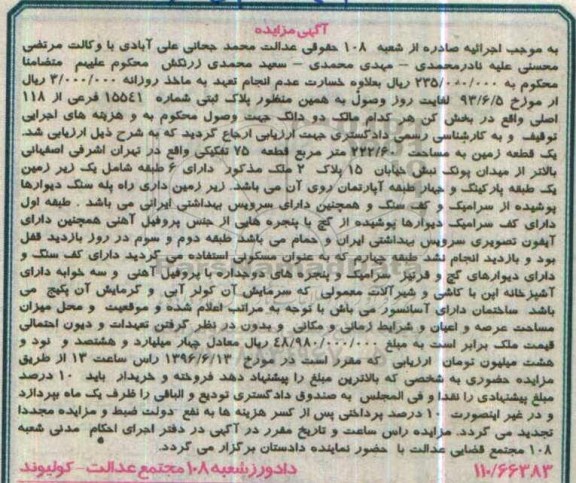 آگهی مزایده
به موجب اجرائیه صادره از شعبه ۱۰۸ حقوقی عدالت محمد جحانی علی آبادی با وکالت مرتضی
محسنی علیه نادرمحمدی - مهدی محمدی - سعید محمدی زرنکش محکوم علیهم متضامنا
محکوم به ۲۳۵/۰۰۰/۰۰۰ ریال بعلاوه خسارت عدم انجام تعهد به ماخذ روزانه ۳/۰۰۰/۰۰۰ ریال
از مورخ ۹۳/۶/۵ لغایت روز وصول به همین منظور پلاک ثبتی شماره ۱۵۵۴۱ فرعی از ۱۱۸
اصلی واقع در بخش کن هر کدام مالک دو دانگ جهت وصول محکوم به و هزینه های اجرایی
توقیف و به کارشناسی رسمی دادگستری جهت ارزیابی ارجاع گردید که به شرح ذیل ارزیابی شد.
یک قطعه زمین به مساحت ۲۲۲/۶۰ متر مربع قطعه ۷۵ تفکیکی واقع در تهران اشرفی اصفهانی
بالاتر از میدان پونک نبش خیابان ۱۵ پلاک ۲ ملک مذکور دارای ۶ طبقه شامل یک زیر زمین
یک طبقه پارکینگ و چهار طبقه آپارتمان روی آن می باشد. زیر زمین داری راه پله سنگ دیوارها
پوشیده از سرامیک و کف سنگ و همچنین دارای سرویس بهداشتی ایرانی می باشد . طبقه اول
دارای کف سرامیک دیوارها پوشیده از گچ با پنجره هایی از جنس پروفیل آهنی همچنین دارای
آیفون تصویری سرویس بهداشتی ایران و حمام می باشد طبقه دوم و سوم در روز بازدید قفل
بود و بازدید انجام نشد طبقه چهارم که به عنوان مسکونی استفاده می گردید دارای کف سنگ و
دارای دیوارهای گچ و قرنیز سرامیک و پنجره های دوجداره با پروفیل آهنی و سه خوابه دارای
آشپزخانه اپن با کاشی و شیرآلات معمولی که سرمایش آن کولر آبی و گرمایش آن پکیج می
باشد ساختمان دارای آسانسور می باش با توجه به مراتب اعلام شده و موقعیت و محل میزان
مساحت عرصه و اعیان و شرایط زمانی و مکانی و بدون در نظر گرفتن تعهدات و دیون احتمالی
قیمت ملک برابر است به مبلغ ۴۸/۹۸۰/۰۰۰/۰۰۰ ریال معادل چهار میلیارد و هشتصد و نود و
هشت میلیون تومان ارزیابی که مقرر است در مورخ ۱۳۹۶/۶/۱۳ راس ساعت ۱۳ از طریق
مزایده حضوری به شخصی که بالاترین مبلغ را پیشنهاد دهد فروخته و خریدار باید ۱۰ درصد
مبلغ پیشنهادی را نقدا و فی المجلس به صندوق دادگستری تودیع و الباقی را ظرف یک ماه بپردازد
و در غیر اینصورت ۱۰ درصد پرداختی پس از کسر هزینه ها به نفع دولت ضبط و مزایده مجددا
تجدید می گردد. مزایده راس ساعت و تاریخ مقرر در آگهی در دفتر اجرای احکام مدنی شعبه
۱۰۸ مجتمع قضایی عدالت با حضور نماینده دادستان برگزار می گردد.
۱۱۰/۶۶۳۸۳ دادورز شعبه ۱۰۸ مجتمع عدالت - کولیوند